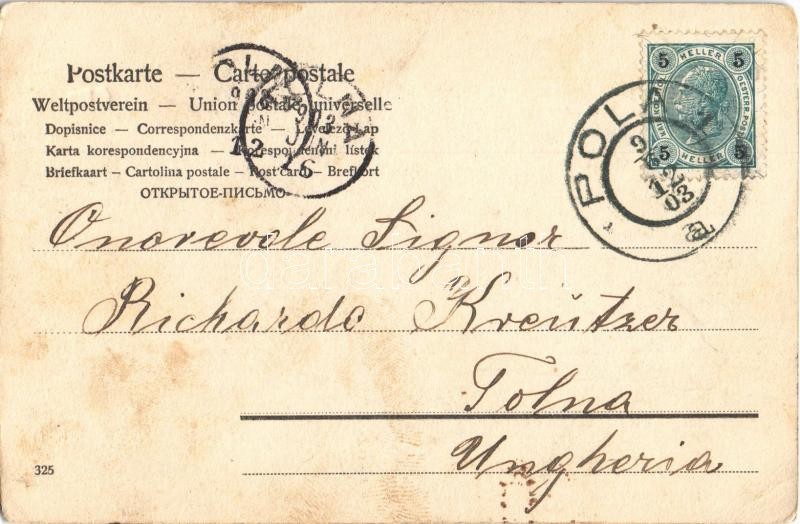 Postkarte — Carte postale
Weltpostverein — Union postale universelle
Dopisnice — Correspondenzkarte — Levelező-Lap
Karta korespondencyjna — Korespondenční lístek
Briefkaart — Cartolina postale — Post card — Brefkort
ОТКРЫТОЕ-ПИСЬМО
5 HELLER 5
5 HELLER 5
POLA
03
TOLNA
Onorevole Signor
Richardo Kreützer
Tolna
Ungheria
325